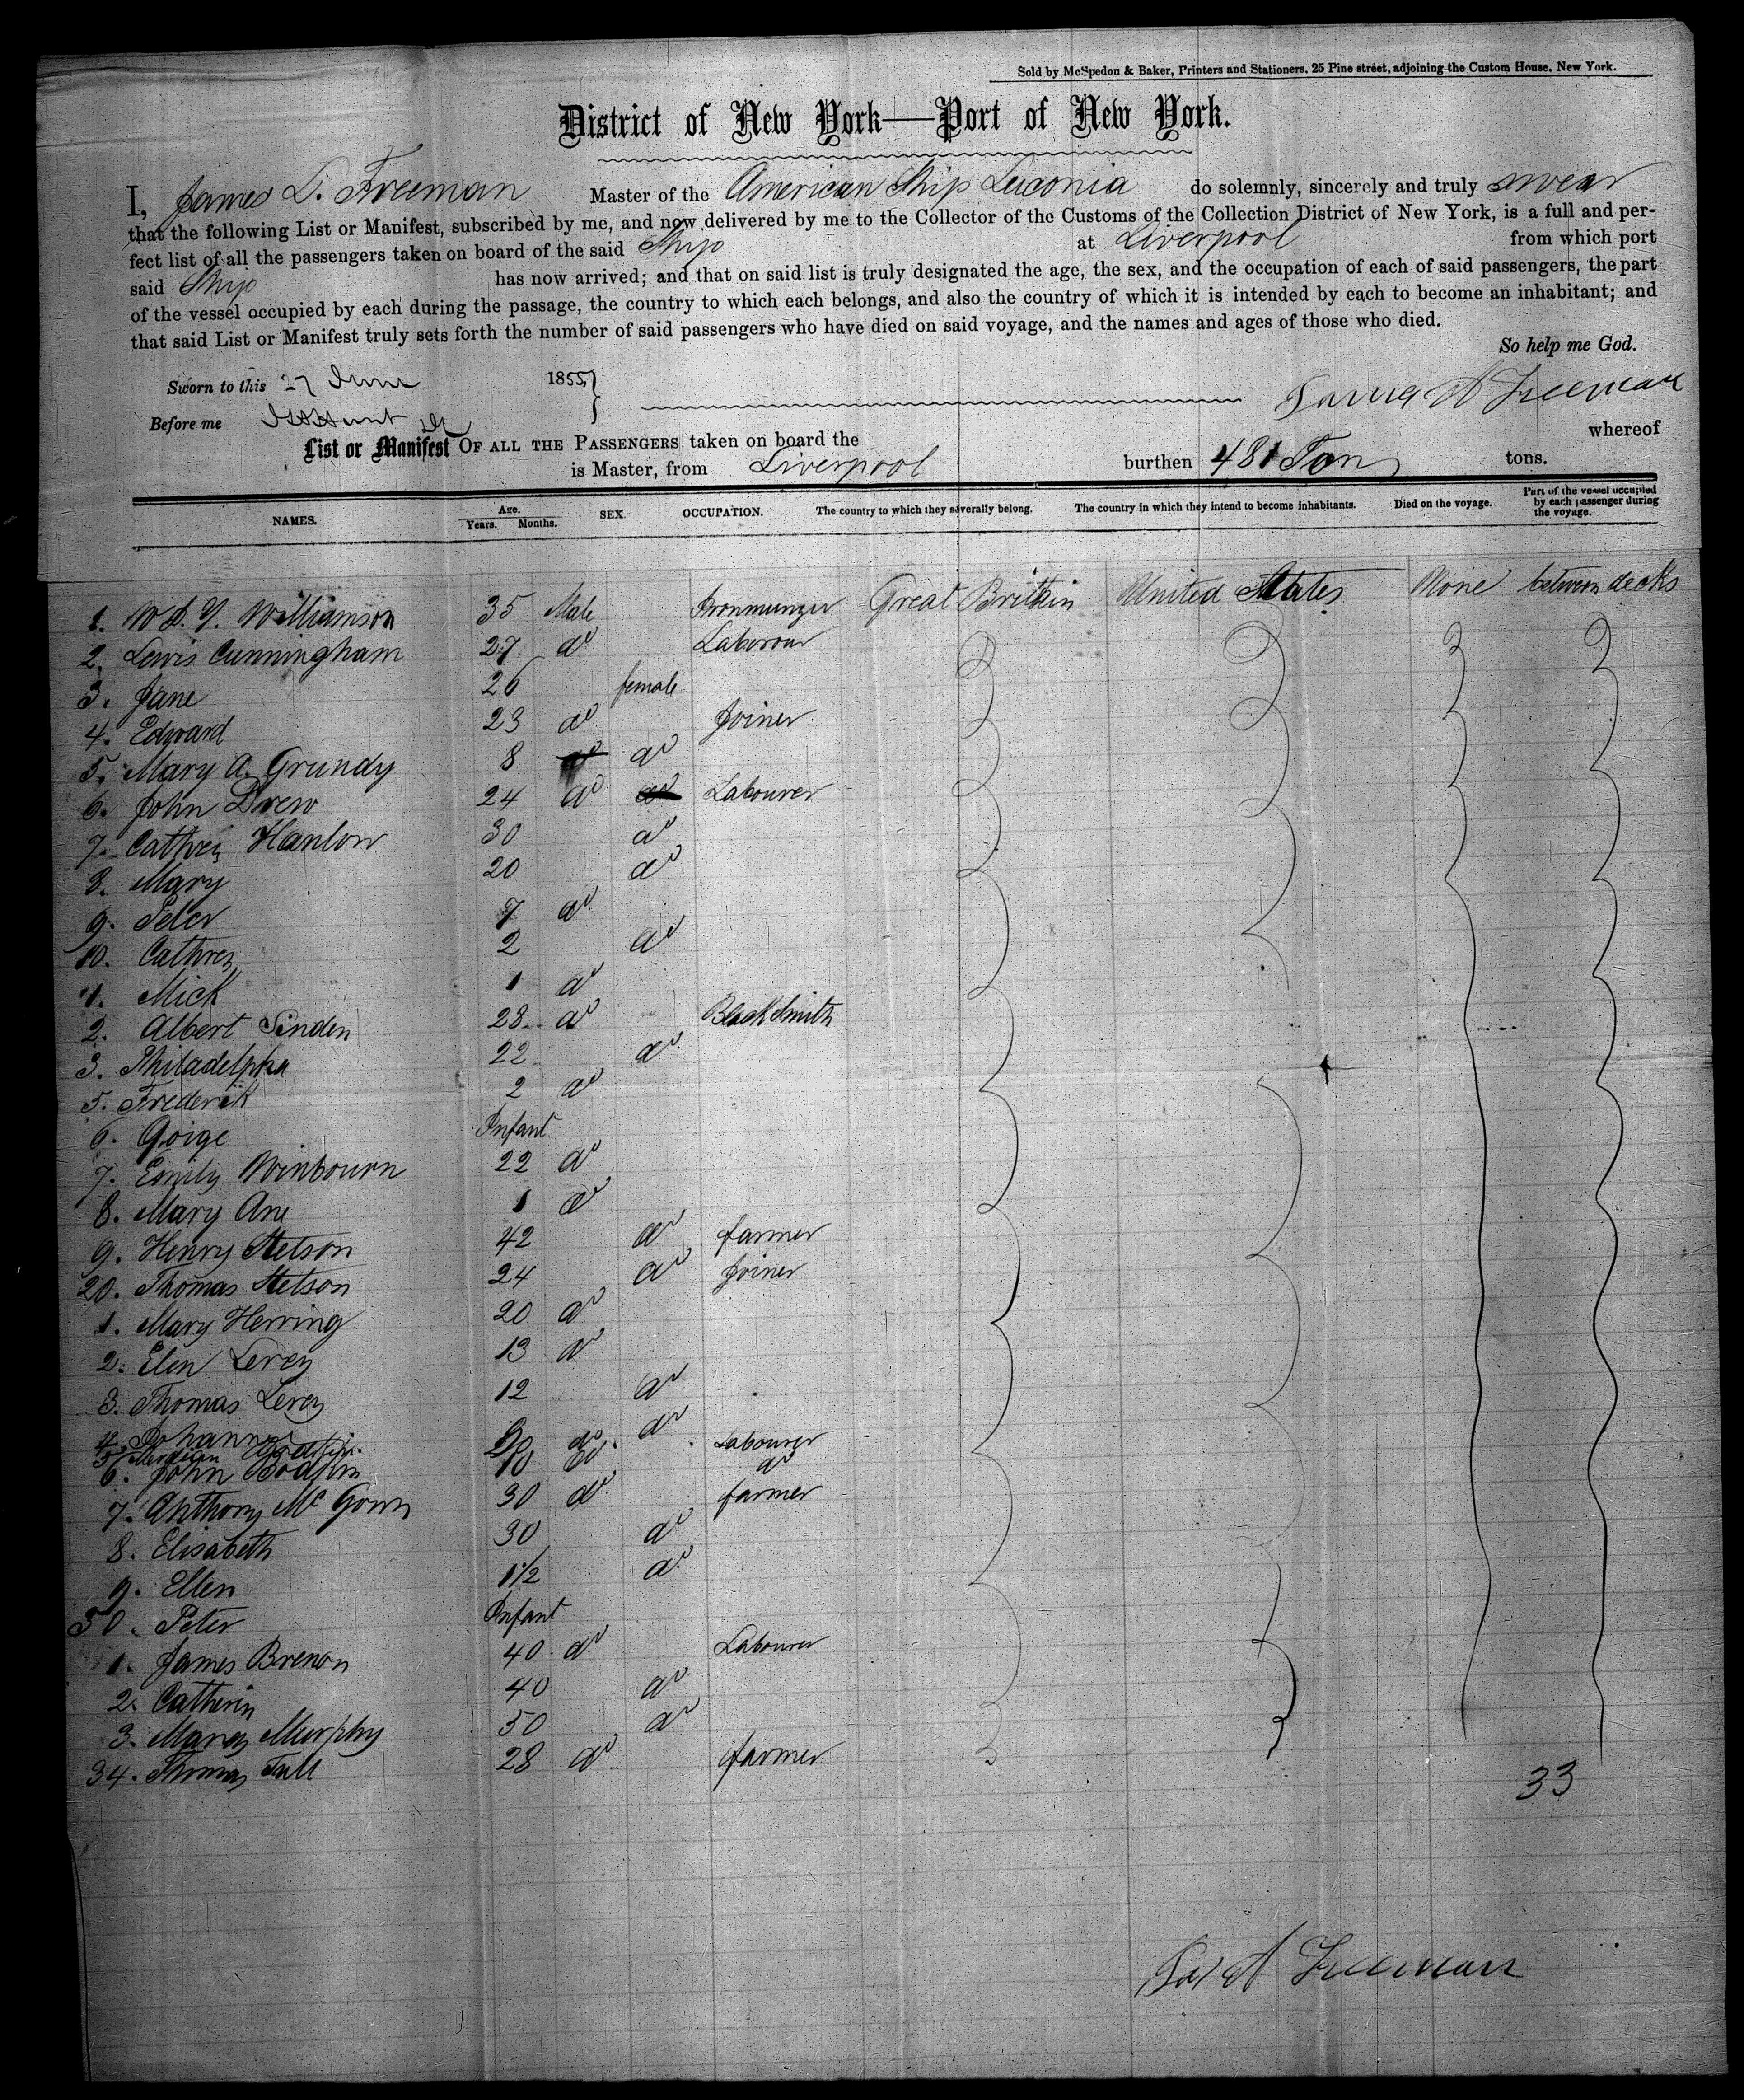 Sold by McSpedon & Baker, Printers and Stationers. 25 Pine street, adjoining the Custom House. New York.
District of New York—Port of New York.
I, James D. Freeman Master of the American Ship Luconia do solemnly, sincerely and truly swear
that the following List or Manifest, subscribed by me, and now delivered by me to the Collector of the Customs of the Collection District of New York, is a full and per-
fect list of all the passengers taken on board of the said Ship at Liverpool from which port
said Ship has now arrived; and that on said list is truly designated the age, the sex, and the occupation of each of said passengers, the part
of the vessel occupied by each during the passage, the country to which each belongs, and also the country of which it is intended by each to become an inhabitant; and
that said List or Manifest truly sets forth the number of said passengers who have died on said voyage, and the names and ages of those who died.
So help me God.
Sworn to this 27 June 1855
Freeman
Before me Hunt
List or Manifest OF ALL THE PASSENGERS taken on board the whereof
is Master, from Liverpool burthen 481 Ton tons.
NAMES. Age. Years. Months. SEX. OCCUPATION. The country to which they severally belong. The country in which they intend to become inhabitants. Died on the voyage. Part of the vessel occupied by each passenger during the voyage.
1. Williamson 35 Male Ironmunger Great Brittin United States None between decks
2. Lewis Cunningham 27 do Laborour
3. Jane 26 female
4. Edward 23 do Joiner
5. Mary A. Grundy 8 do
6. John Drew 24 do Labourer
7. Cathrin Hanlon 30 do
8. Mary 20 do
9. Peter 7 do
10. Cathren 2 do
1. Mick 1 do
2. Albert Sinden 28 do BlackSmith
3. Philadelpha 22 do
5. Frederik 2 do
6. Goige Infant
7. Emily Winbourn 22 do
8. Mary Ane 1 do
9. Henry Stetson 42 do farmer
20. Thomas Stetson 24 do Joiner
1. Mary Herring 20 do
2. Elen Lerey 13 do
3. Thomas Lerey 12 do
4. Johanna do
5. do. Labourer
6. John Bodfin do do
7. Anthony Mc Gown 30 do farmer
8. Elisabeth 30 do
9. Ellen 1 1/2 do
30. Peter Infant
1. James Brenon 40 do Labourer
2. Catherin 40 do
3. Murphy 50 do
34. Thomas Tall 28 do farmer
33
Freeman